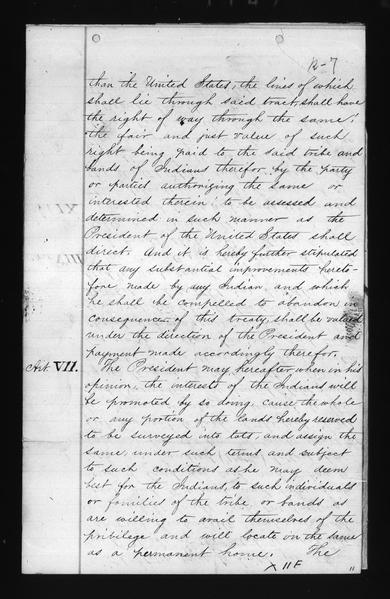 12-7
than the United States, the lines of which
shall lie through said tract, shall have
the right of way through the same;
the fair and just value of such
right being paid to the said tribe and
bands of Indians therefor by the party
or parties authorizing the same or
interested therein; to be assessed and
determined in such manner as the
President of the United States shall
direct. And it is hereby further stipulated
that any substantial improvements hereto-
fore made by any Indian, and which
he shall be compelled to abandon in
consequence of this treaty, shall be valued
under the direction of the President and
payment made accordingly therefor.
Art. VII. The President may hereafter when in his
opinion, the interests of the Indians will
be promoted by so doing, cause the whole
or any portion of the lands hereby reserved
to be surveyed into lots, and assign the
same, under such terms and subject
to such conditions as he may deem
best for the Indians, to such individuals
or families of the tribe or bands as
are willing to avail themselves of the
privilege and will locate on the same
as a permanent home. The
X 11F
11